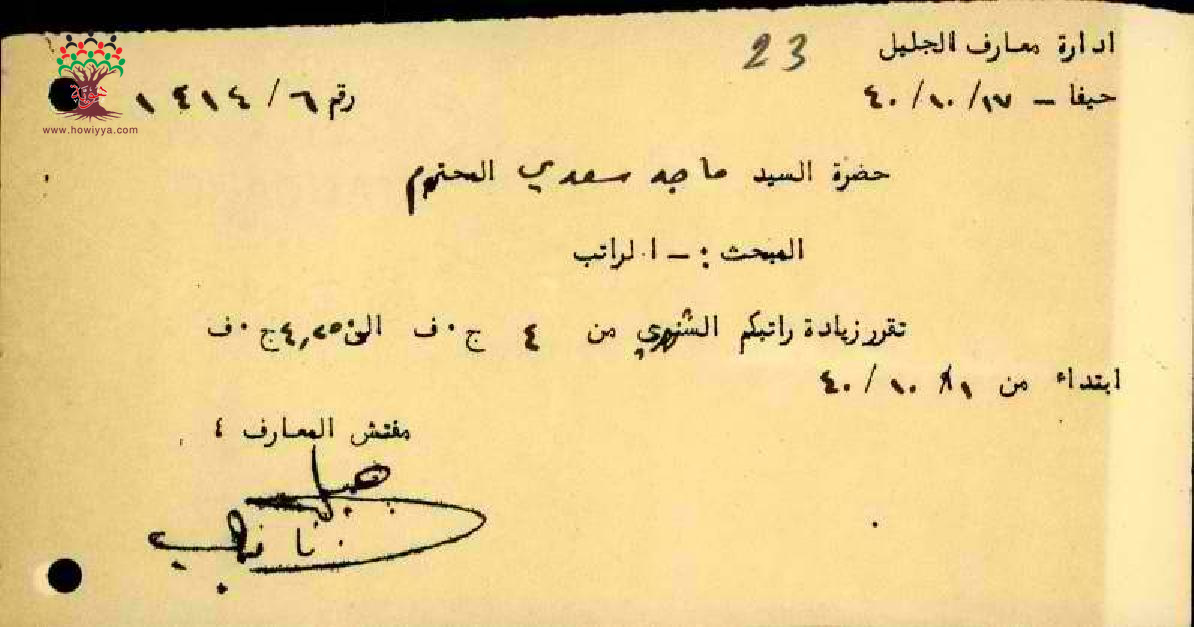 ادارة معارف الجليل
23
حيفا – ١٧/ ١٠/ ٤٠
رقم ٦/ ١٤١٤
www.howiyya.com
حضرة السيد ماجد سعدي المحترم
المبحث :– الراتب
تقرر زيادة راتبكم الشهري من ٤ ج.ف الى ٤,٢٥٠ ج.ف
ابتداء من ١/ ١٠/ ٤٠
مفتش المعارف